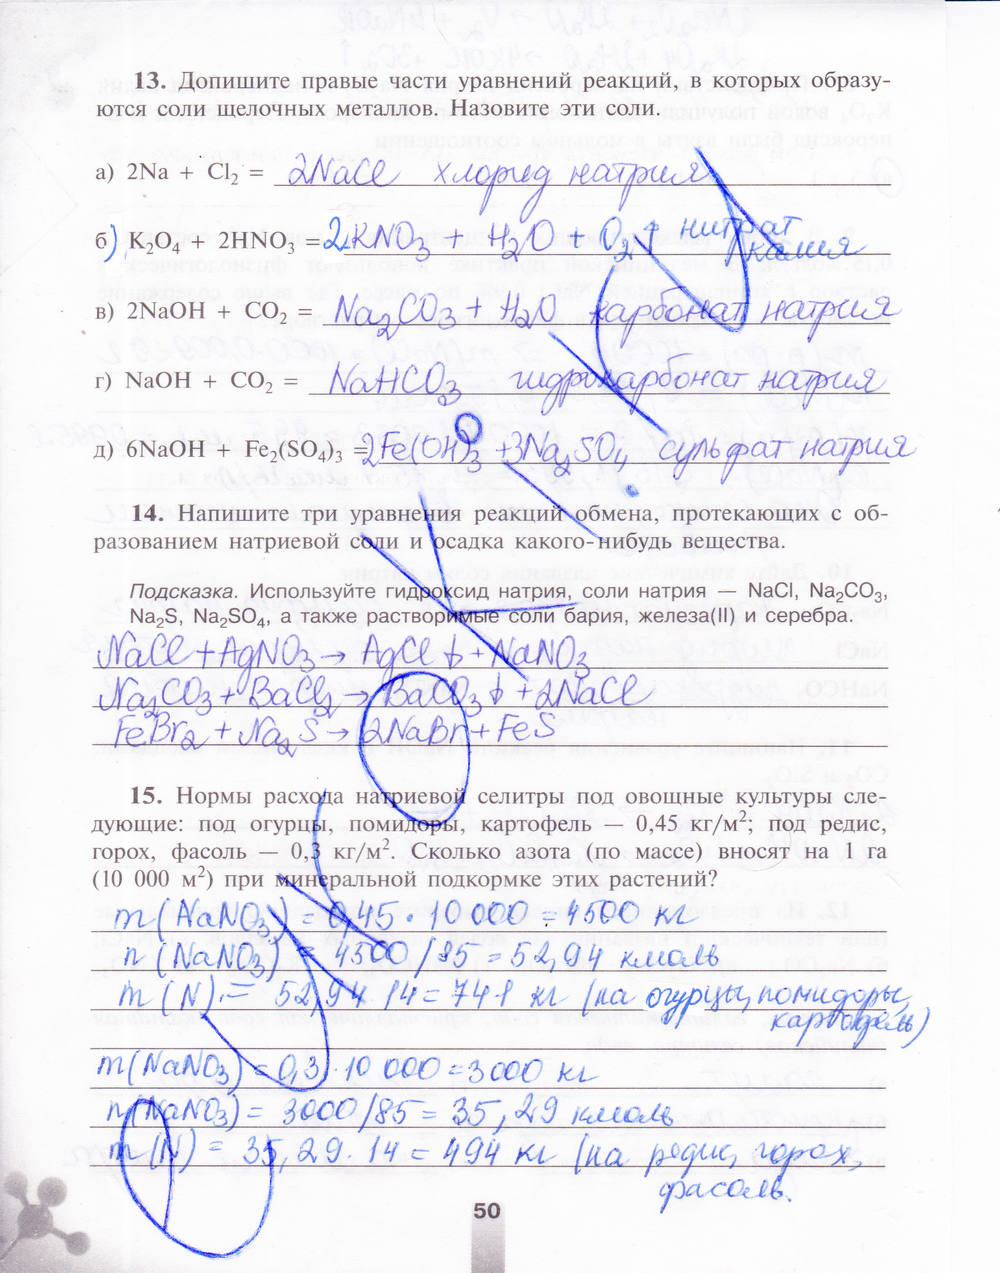 13. Допишите правые части уравнений реакций, в которых образу-
ются соли щелочных металлов. Назовите эти соли.
а) 2Na + Cl₂ = 2NaCl хлорид натрия
б) K₂O₄ + 2HNO₃ = 2KNO₃ + H₂O + O₂↑ нитрат
калия
в) 2NaOH + CO₂ = Na₂CO₃ + H₂O карбонат натрия
г) NaOH + CO₂ = NaHCO₃ гидрокарбонат натрия
д) 6NaOH + Fe₂(SO₄)₃ = 2Fe(OH)₃ + 3Na₂SO₄ сульфат натрия
14. Напишите три уравнения реакций обмена, протекающих с об-
разованием натриевой соли и осадка какого-нибудь вещества.
Подсказка. Используйте гидроксид натрия, соли натрия — NaCl, Na₂CO₃,
Na₂S, Na₂SO₄, а также растворимые соли бария, железа(II) и серебра.
NaCl + AgNO₃ → AgCl↓ + NaNO₃
Na₂CO₃ + BaCl₂ → BaCO₃↓ + 2NaCl
FeBr₂ + Na₂S → 2NaBr + FeS
15. Нормы расхода натриевой селитры под овощные культуры сле-
дующие: под огурцы, помидоры, картофель — 0,45 кг/м²; под редис,
горох, фасоль — 0,3 кг/м². Сколько азота (по массе) вносят на 1 га
(10 000 м²) при минеральной подкормке этих растений?
m(NaNO₃) = 0,45 · 10 000 = 4500 кг
n(NaNO₃) = 4500/85 = 52,94 кмоль
m(N) = 52,94 · 14 = 741 кг (на огурцы, помидоры,
картофель)
m(NaNO₃) = 0,3 · 10 000 = 3000 кг
n(NaNO₃) = 3000/85 = 35,29 кмоль
m(N) = 35,29 · 14 = 494 кг (на редис, горох,
фасоль.
50